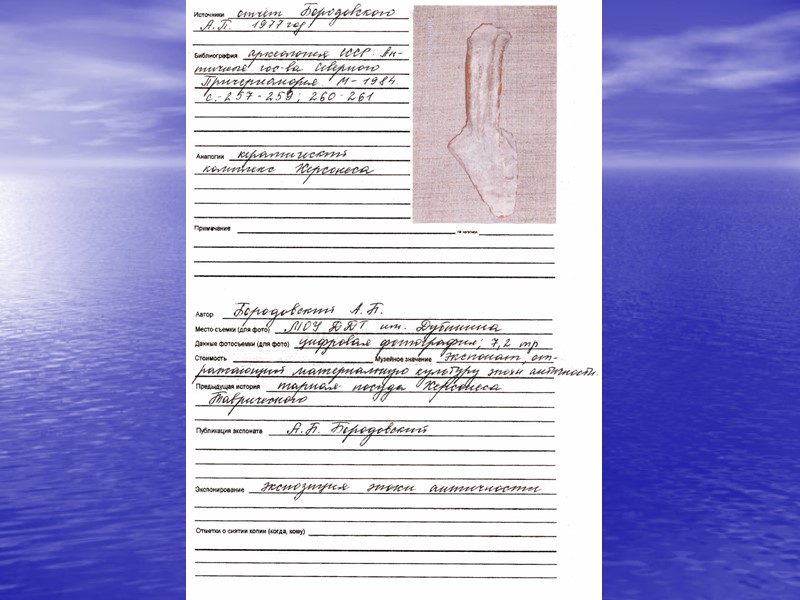 Источники отчет Бородовского
А.П. 1977 год
Библиография археология СССР: Ан-
тичные гос-ва Северного
Причерноморья М-1984.
с.-257-259; 260-261
Аналогии керамический
комплекс Херсонеса
Примечание
Автор Бородовский А.П.
Место съемки (для фото) МОУ ДДТ им. Дубинина
Данные фотосъемки (для фото) цифровая фотография; 7,2 mp
Стоимость Музейное значение экспонат, от-
ражающий материальную культуру эпохи античности.
Предыдущая история тарная посуда Херсонеса
Таврического
Публикация экспоната А.П. Бородовский
Экспонирование экспозиция эпохи античности
Отметки о снятии копии (когда, кому)